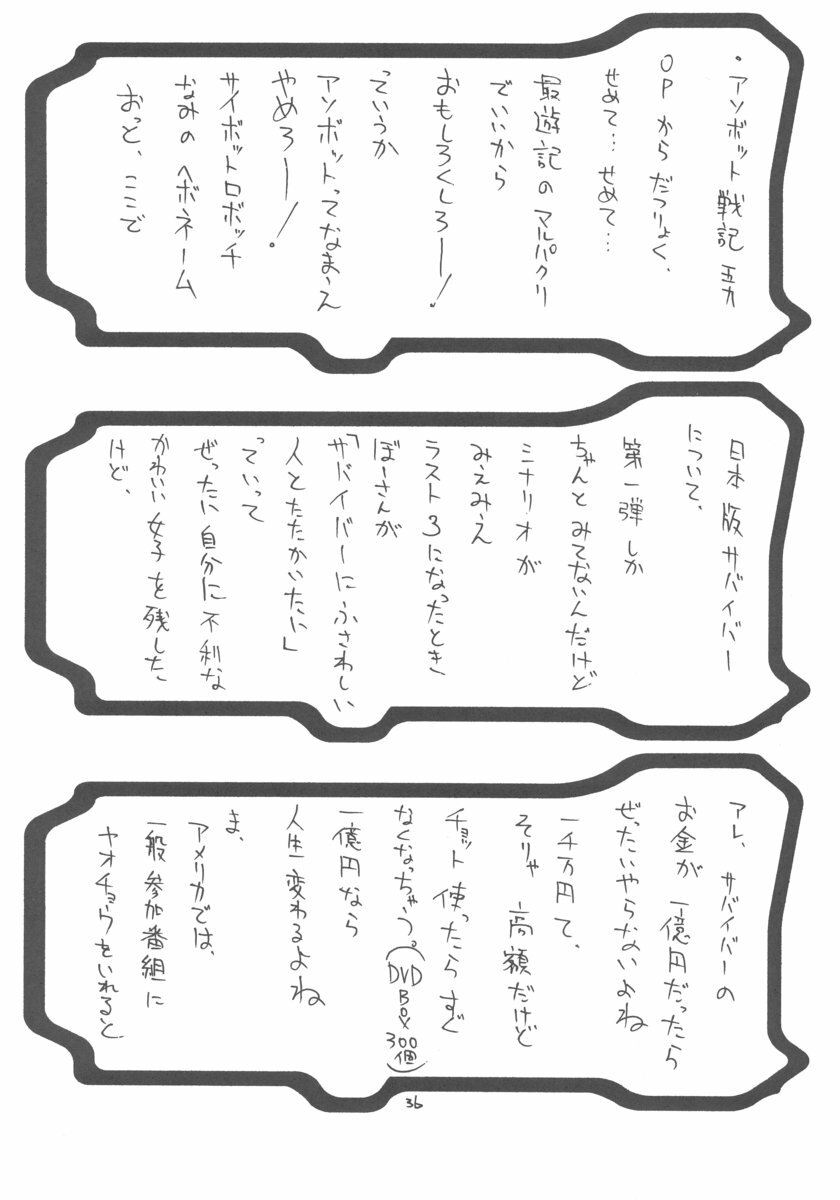 ・アソボット戦記五九
OPからだつりょく、
せめて…せめて…
最遊記のマルパクリ
でいいから
おもしろくしろー!
っていうか
アソボットってなまえ
やめろー!
サイボットロボッチ
なみのヘボネーム
おっと、ここで
日本版サバイバー
について、
第一弾しか
ちゃんとみてないんだけど
ミナリオが
みえみえ
ラスト3になったとき
ぼーさんが
「サバイバーにふさわしい
人とたたかいたい」
っていって
ぜったい自分に不利な
かわいい女子を残した
けど、
アレ、サバイバーの
お金が一億円だったら
ぜったいやらないよね
一千万円て、
そりゃ高額だけど
チョット使ったらすぐ
なくなっちゃう。(DVD BOX 300個)
一億円なら
人生変わるよね
ま、
アメリカでは、
一般参加番組に
ヤオチョウをいれると
36